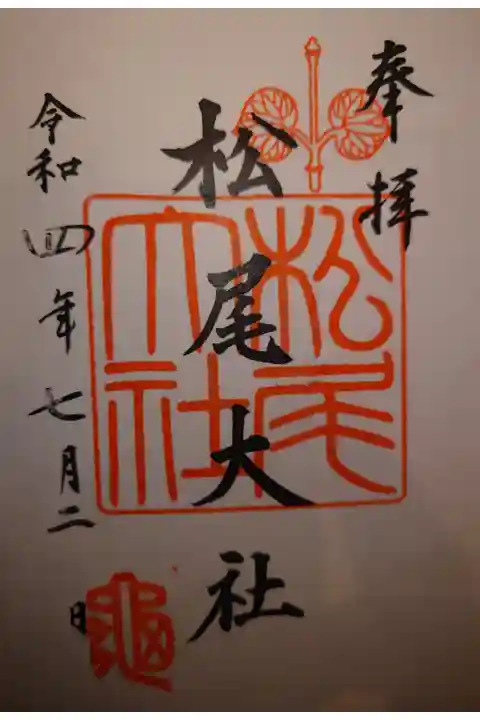 奉拝
松尾大社
松尾大社
令和四年七月二日